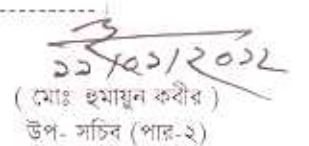 ২২/০১/২০১২
( মোঃ হুমায়ুন কবীর )
উপ- সচিব (পার-২)